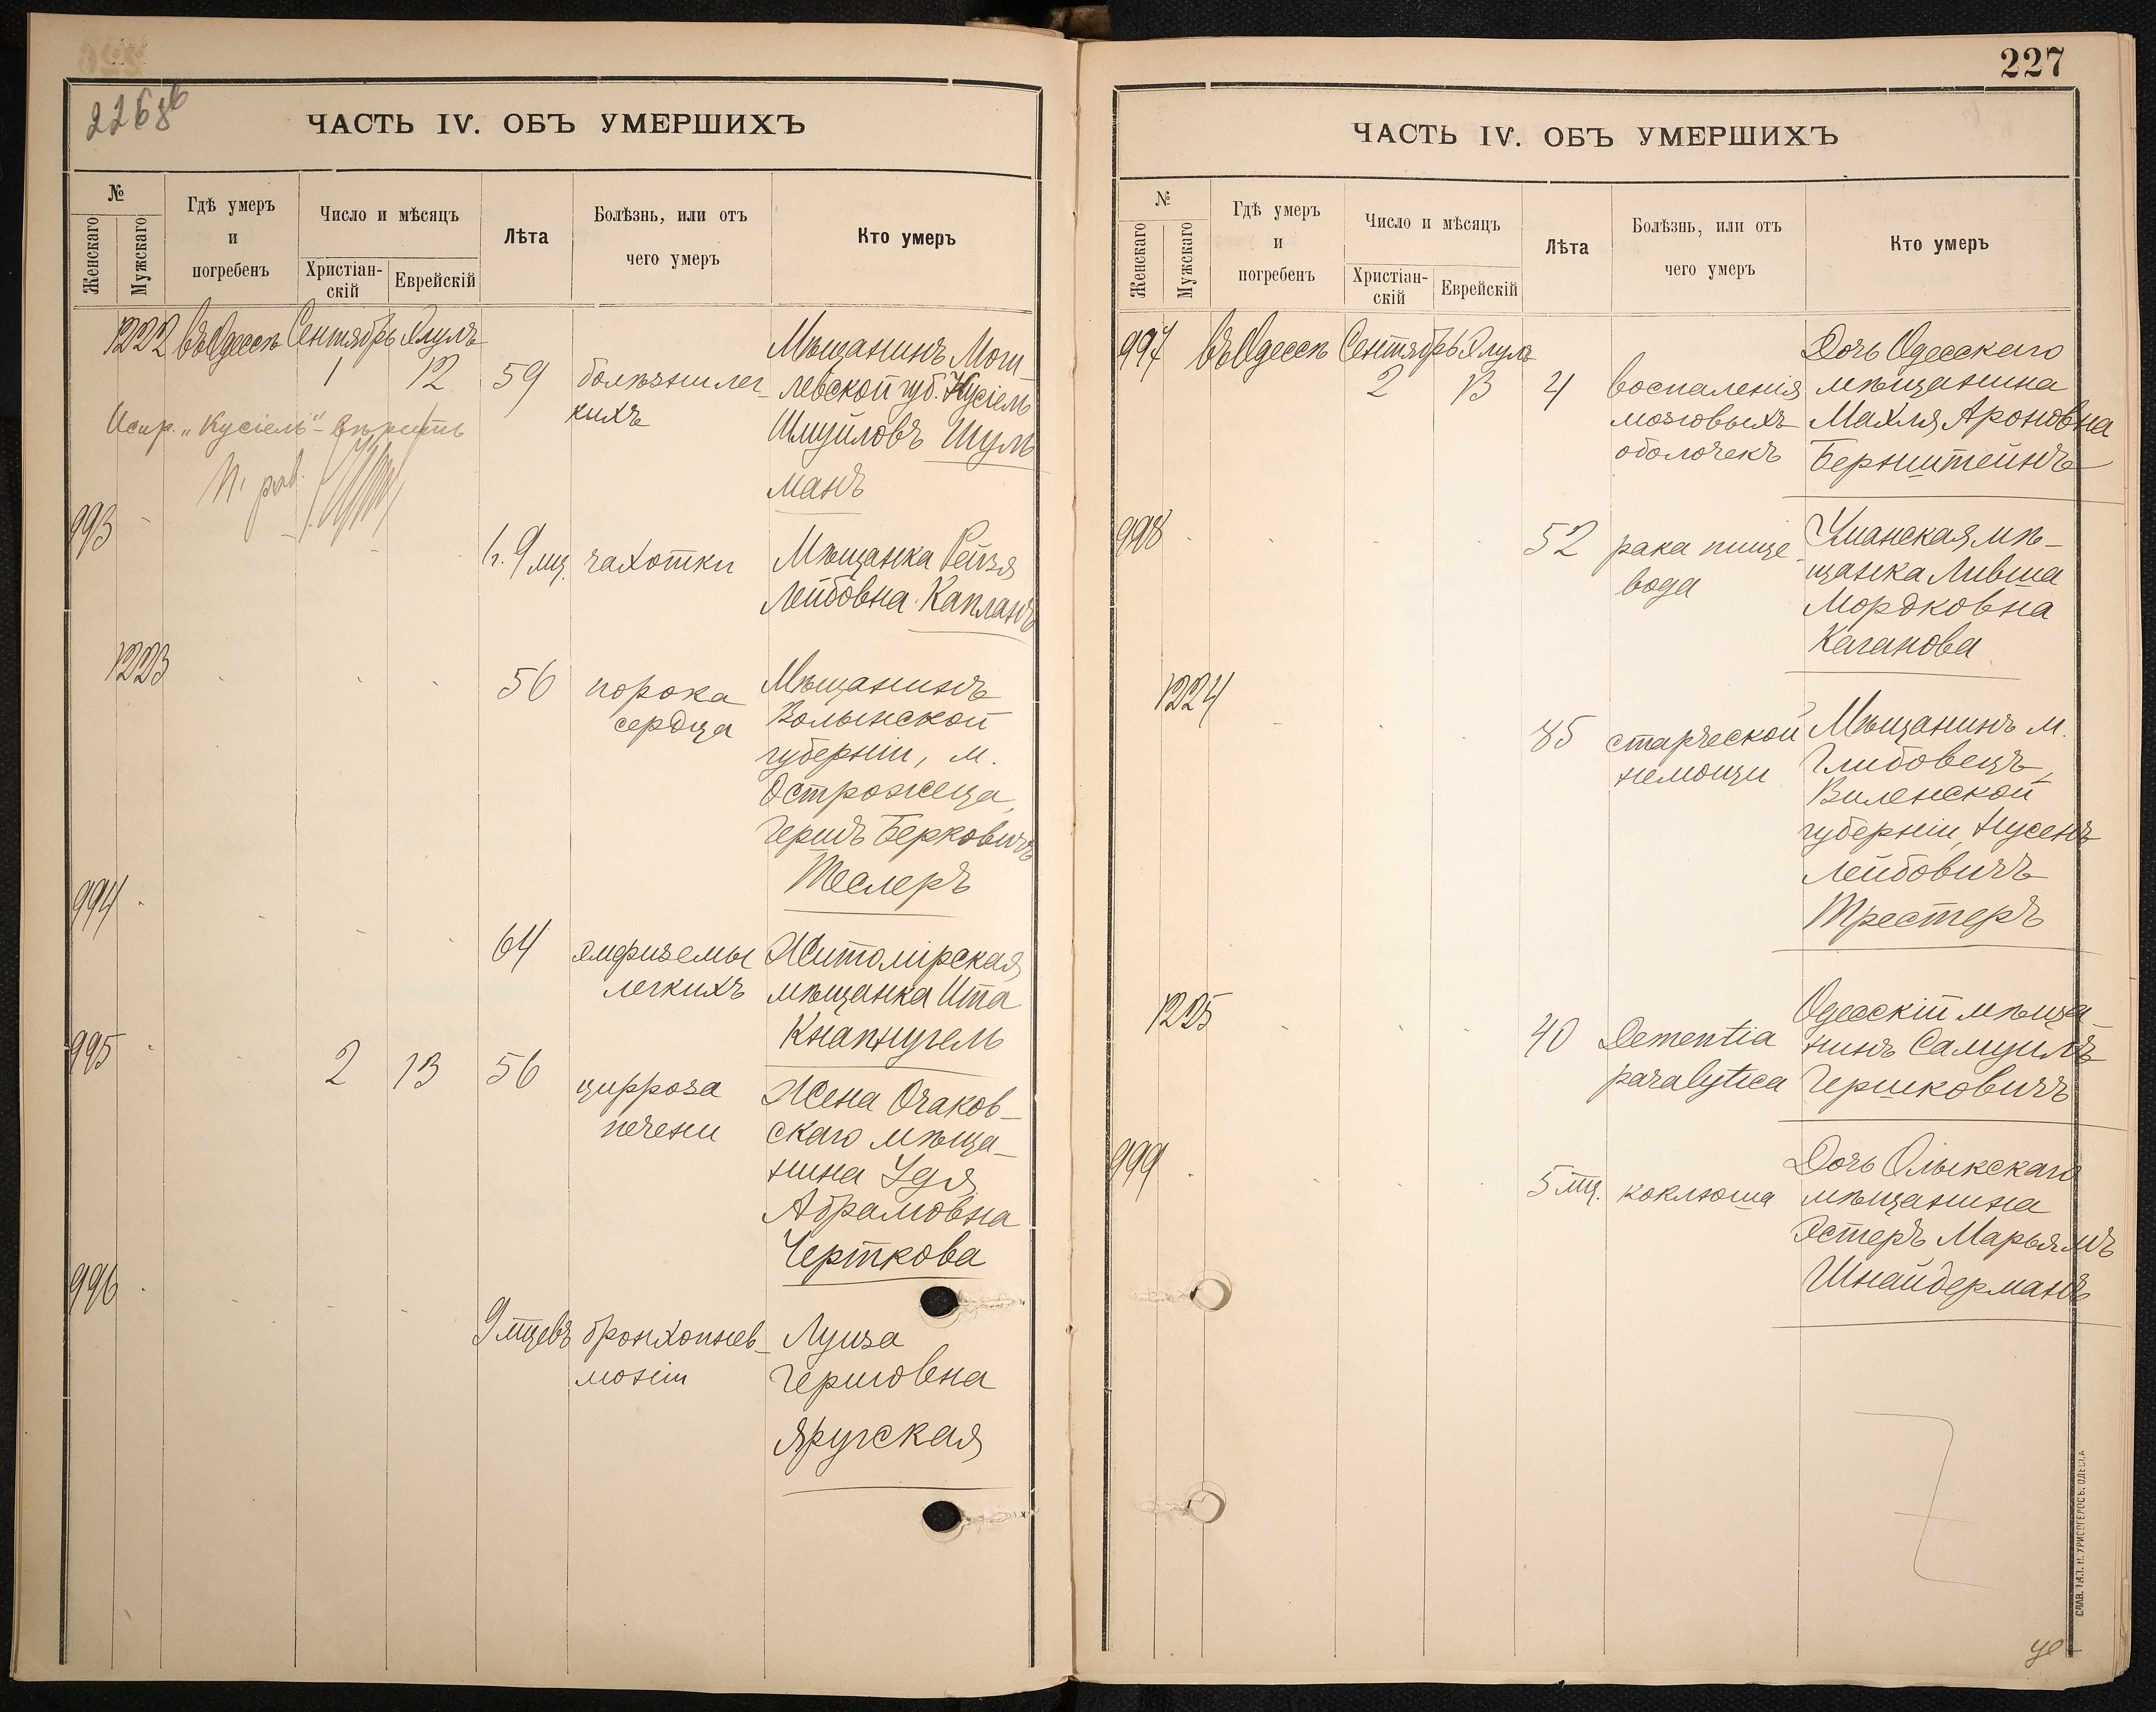 226 об
ЧАСТЬ IV. ОБЪ УМЕРШИХЪ
№
Женскаго
Мужскаго
Гдѣ умеръ
и
погребенъ
Число и мѣсяцъ
Христіан-
скій
Еврейскій
Лѣта
Болѣзнь, или отъ
чего умеръ
Кто умеръ
1222 въ Одессѣ Сентябрь Элулъ
1 12 59 болѣзни лег-
кихъ
Мѣщанинъ Моги
левской губ. Кусіель
Шмуйловъ Шуль
манъ
Испр. „Кусіель" - вѣрить
993
1 г. 9 мц. чахотки
Мѣщанка Рейзя
Лейбовна Капланъ
1223
56 порока
сердца
Мѣщанинъ
Волынской
губерніи, м.
Острожеца,
Гершъ Берковичъ
Теслеръ
994
64 эмфиземы
легкихъ
Житомірская
мѣщанка Ита
Кнапнугель
995
2 13 56 цирроза
печени
Жена Очаков-
скаго мѣща-
нина Удя
Абрамовна
Черткова
996
9 мцевъ бронхопнев-
моніи
Луиза
Гершовна
Яругская
227
ЧАСТЬ IV. ОБЪ УМЕРШИХЪ
№
Женскаго
Мужскаго
Гдѣ умеръ
и
погребенъ
Число и мѣсяцъ
Христіан-
скій
Еврейскій
Лѣта
Болѣзнь, или отъ
чего умеръ
Кто умеръ
997 въ Одессѣ Сентябрь Элулъ
2 13 4 воспаленія
мозговыхъ
оболочекъ
Дочь Одесскаго
мѣщанина
Махля Ароновна
Бернштейнъ
998
52 рака пище-
вода
Уманская мѣ-
щанка Ливша
Мордковна
Каганова
1224
85 старческой
немощи
Мѣщанинъ м.
Глибовецъ,
Виленской
губерніи, Нусенъ
Лейбовичъ
Трестеръ
1225
40 Dementia
paralytica
Одесскій мѣща-
нинъ Самуилъ
Гершковичъ
999
5 мц. коклюша
Дочь Олыкскаго
мѣщанина
Эстеръ Марьямъ
Шнайдерманъ
СЛАВ. ТИП. Н. ХРИСОГЕЛОСЪ. ОДЕССА